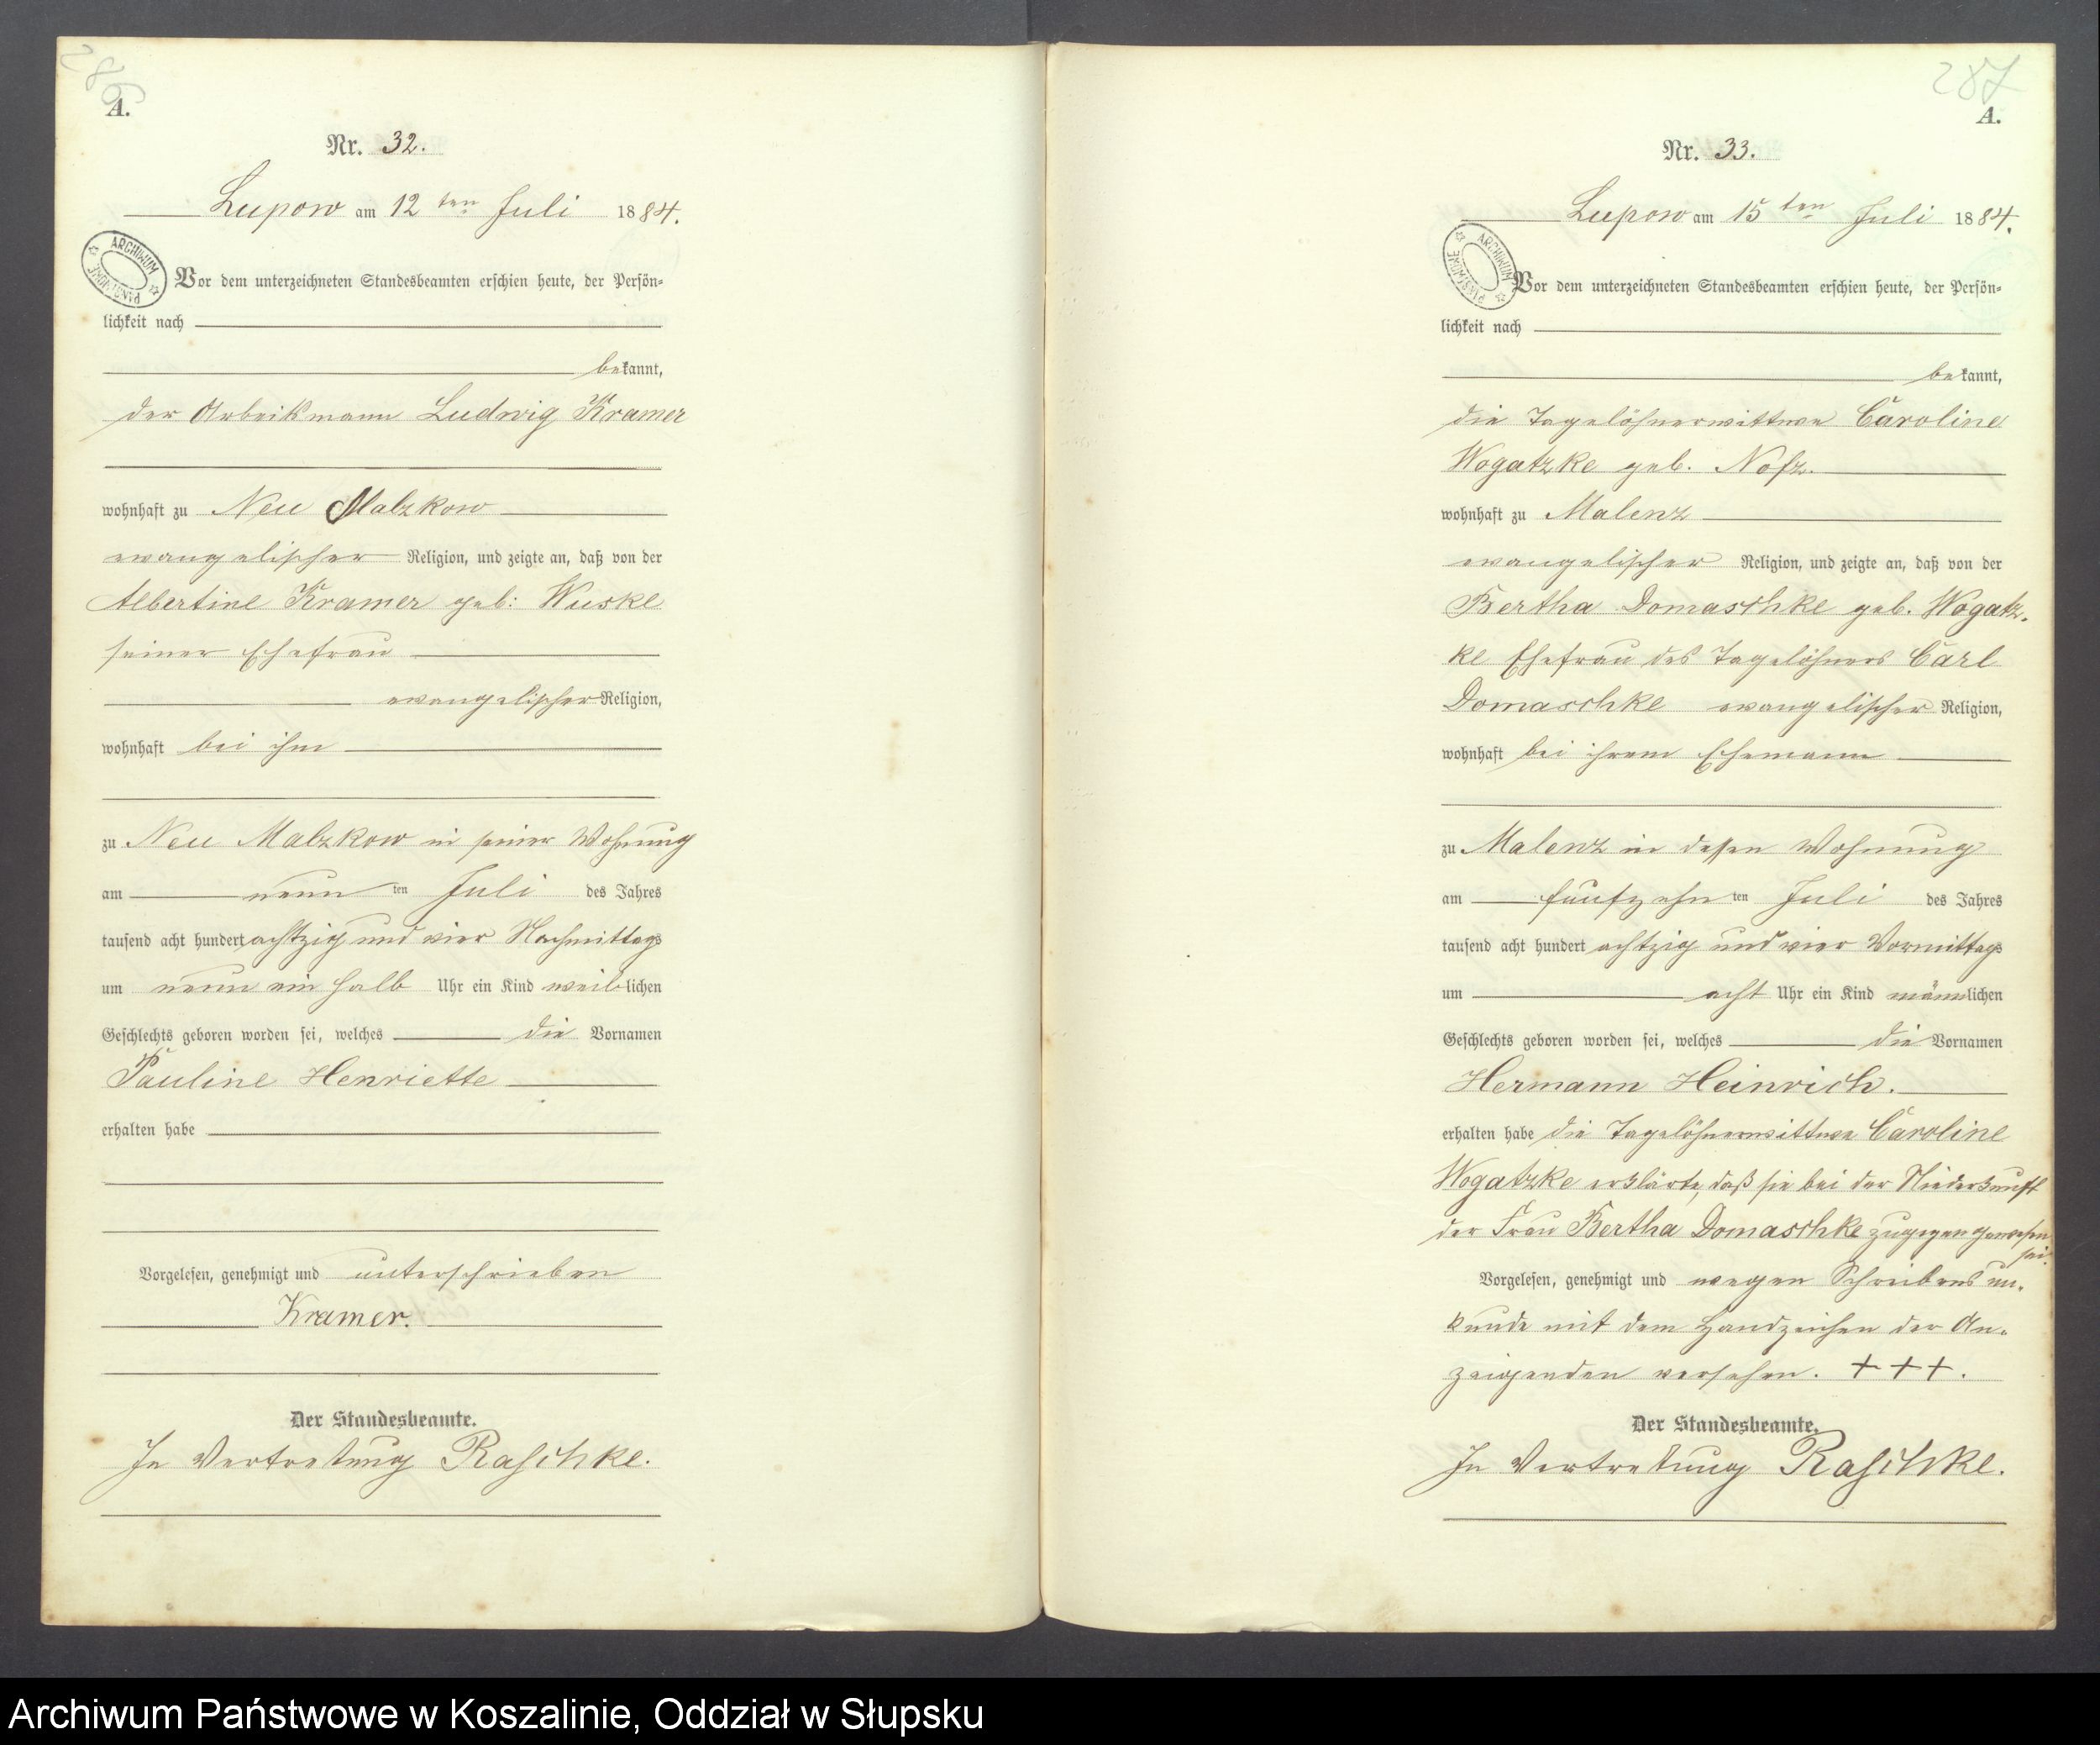 286
A.
Nr. 32.
Lupow am 12 ten Juli 1884.
ARCHIWUM PAŃSTWOWE
Vor dem unterzeichneten Standesbeamten erschien heute, der Persön-
lichkeit nach
bekannt,
der Arbeitsmann Ludwig Kramer
wohnhaft zu Neu Malzkow
evangelischer Religion, und zeigte an, daß von der
Albertine Kramer geb: Wuske
seiner Ehefrau
evangelischer Religion,
wohnhaft bei ihm
zu Neu Malzkow in seiner Wohnung
am neun ten Juli des Jahres
tausend acht hundert achtzig und vier Nachmittags
um neun ein halb Uhr ein Kind weiblichen
Geschlechts geboren worden sei, welches die Vornamen
Pauline Henriette
erhalten habe
Vorgelesen, genehmigt und unterschrieben
Kramer.
Der Standesbeamte.
In Vertretung Raschke.
287
A.
Nr. 33.
Lupow am 15 ten Juli 1884.
ARCHIWUM PAŃSTWOWE
Vor dem unterzeichneten Standesbeamten erschien heute, der Persön-
lichkeit nach
bekannt,
die Tagelöhnerwittwe Caroline
Wogatzke geb. Nofz.
wohnhaft zu Malenz
evangelischer Religion, und zeigte an, daß von der
Bertha Domaschke geb. Wogatz-
ke Ehefrau des Tagelöhners Carl
Domaschke evangelischer Religion,
wohnhaft bei ihrem Ehemann
zu Malenz in dessen Wohnung
am funfzehn ten Juli des Jahres
tausend acht hundert achtzig und vier Vormittags
um acht Uhr ein Kind männlichen
Geschlechts geboren worden sei, welches die Vornamen
Hermann Heinrich.
erhalten habe die Tagelöhnerwittwe Caroline
Wogatzke erklärte, daß sie bei der Niederkunft
der Frau Bertha Domaschke zugegen gewesen
sei.
Vorgelesen, genehmigt und wegen Schreibens un-
kunde mit dem Handzeichen der An-
zeigenden versehen. + + +.
Der Standesbeamte.
In Vertretung Raschke.
Archiwum Państwowe w Koszalinie, Oddział w Słupsku